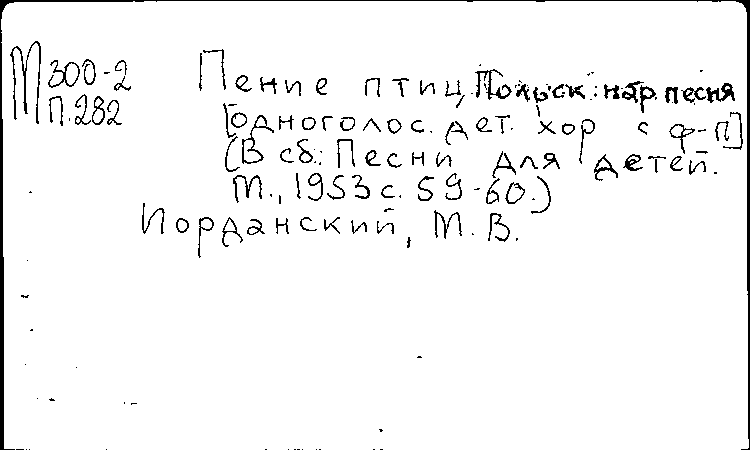 М 300-2
П.282
Пение птиц. Польск. нар. песня
[одноголос. дет. хор с ф-п]
(В сб.: Песни для детей.
М., 1953 с. 59-60.)
Иорданский, М. В.